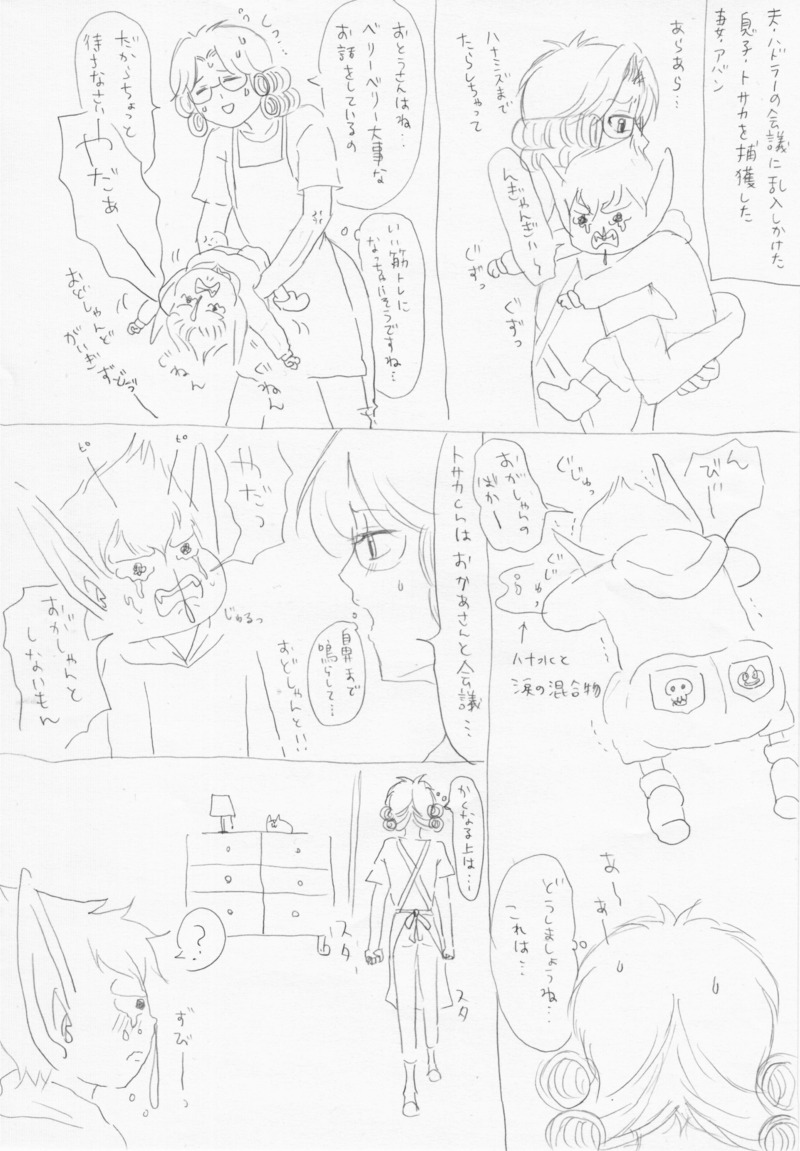 夫・ハドラーの会議に乱入しかけた
息子・トサカを捕獲した
妻・アバン
あらあら…
ハナミズまで
たらしちゃって
んぎゃんぎぃ〜
ぐずっ
ぐずっ
おとうさんはね…
ベリーベリー大事な
お話をしているの
しっ…
だからちょっと
待ちなさい
やだぁー
いい筋トレに
なっちゃいそうですね…
おどしゃんど
がいぎずどぅっ
ぐねん
ぐねん
んびー
ぐじゅっ
おがしゃんの
ばかー
ぐじゅっ
ハナ水と
涙の混合物
トサカくんはおかあさんと会議…
鼻まで
鳴らして…
やだっ
ピ
ピ
じゅるっ
おどしゃんと!!
おがしゃんと
しないもん
あ〜
あ〜
どうしましょうね…
これは…
かくなる上は…
スタ
スタ
?
ずびーっ